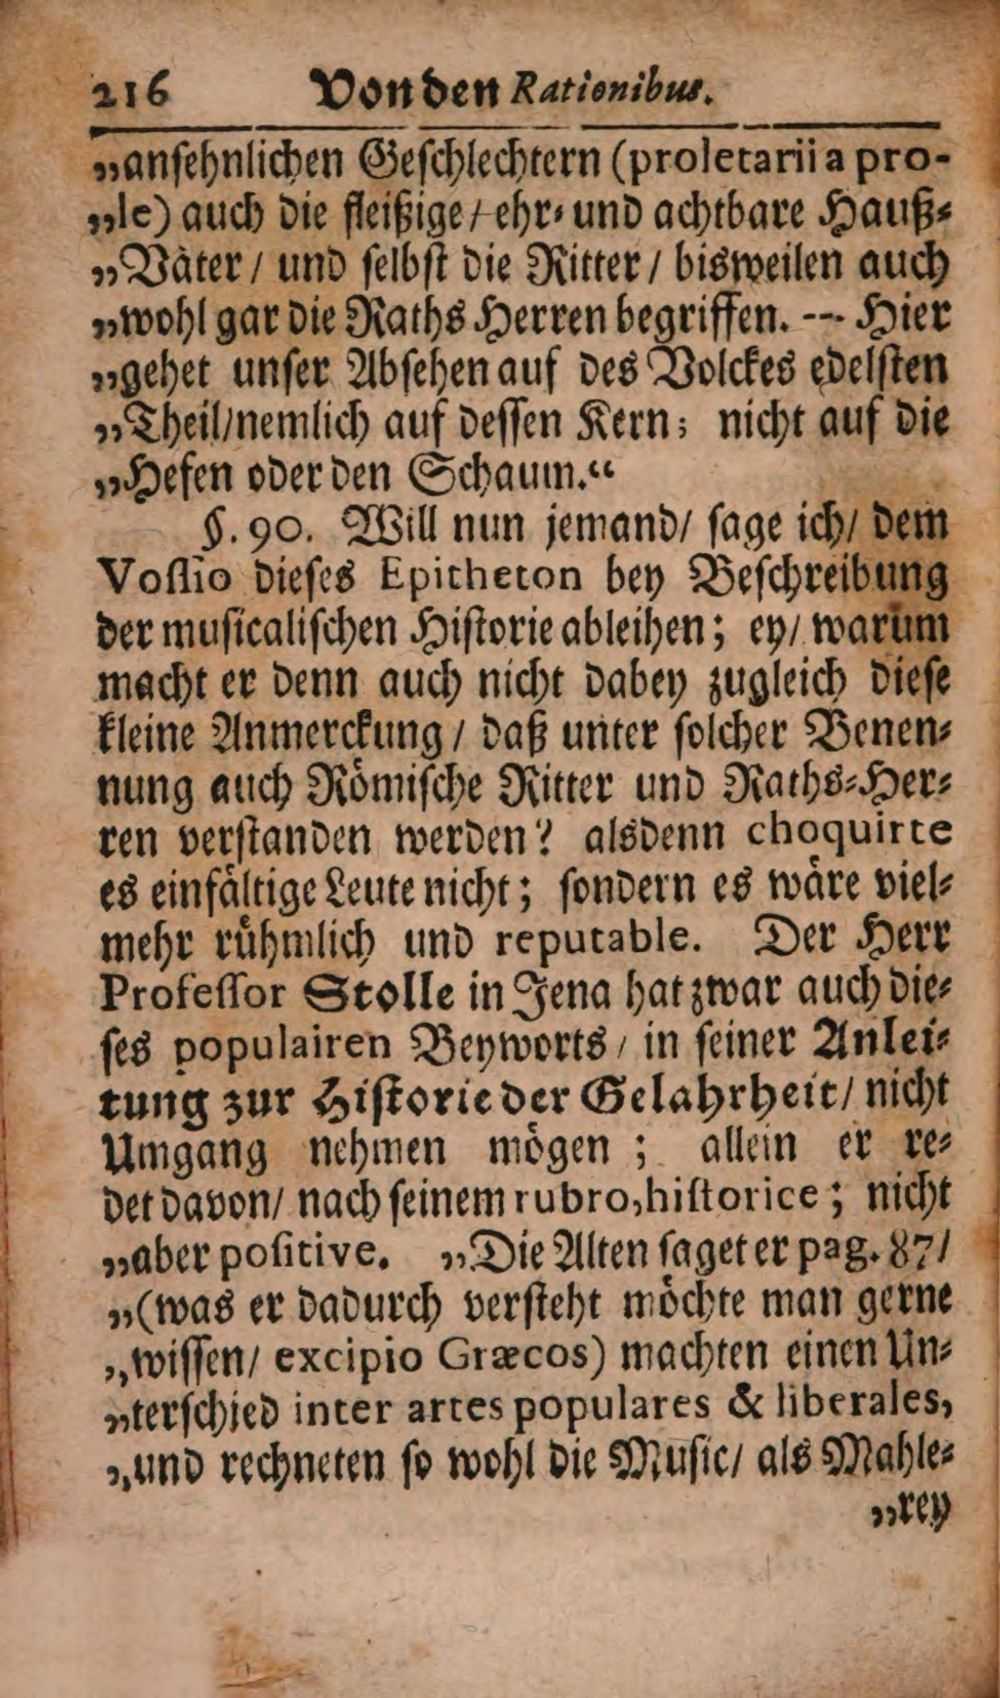 216 Von den Rationibus.
„ansehnlichen Geschlechtern (proletarii a pro-
„le) auch die fleißige/ ehr- und achtbare Hauß-
„Väter / und selbst die Ritter / bisweilen auch
„wohl gar die Raths Herren begriffen. --- Hier
„gehet unser Absehen auf des Volckes edelsten
„Theil/nemlich auf dessen Kern; nicht auf die
„Hefen oder den Schaum.“
§. 90. Will nun jemand/ sage ich/ dem
Vossio dieses Epitheton bey Beschreibung
der musicalischen Historie ableihen; ey/ warum
macht er denn auch nicht dabey zugleich diese
kleine Anmerckung / daß unter solcher Benen-
nung auch Römische Ritter und Raths-Her-
ren verstanden werden? alsdenn choquirte
es einfältige Leute nicht; sondern es wäre viel-
mehr rühmlich und reputable. Der Herr
Professor Stolle in Jena hat zwar auch die-
ses populairen Beyworts / in seiner Anlei-
tung zur Historie der Gelahrheit/ nicht
Umgang nehmen mögen ; allein er re-
det davon/ nach seinem rubro, historice ; nicht
„aber positive. „Die Alten saget er pag. 87/
„(was er dadurch versteht möchte man gerne
„wissen/ excipio Græcos) machten einen Un-
„terschied inter artes populares & liberales,
„und rechneten so wohl die Music/ als Mahle-
„rey